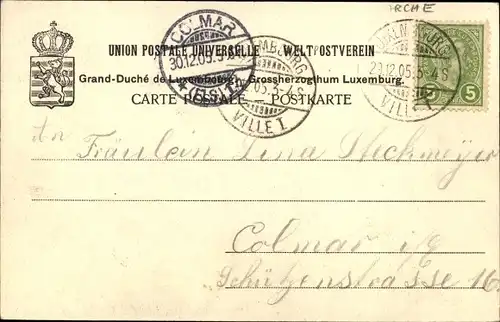 RCHE
UNION POSTALE UNIVERSELLE WELTPOSTVEREIN
Grand-Duché de Luxembourg. Grossherzogthum Luxemburg.
CARTE POSTALE POSTKARTE
COLMAR
30.12.05
* (ELS) *
MBOURG
05.3-4S
VILLE 1.
LUXEMBOURG
29.12.05.3-4S
VILLE 1.
5 5
An Fräulein Lina Steckmeyer
Colmar i/E
Schützenstrasse 16